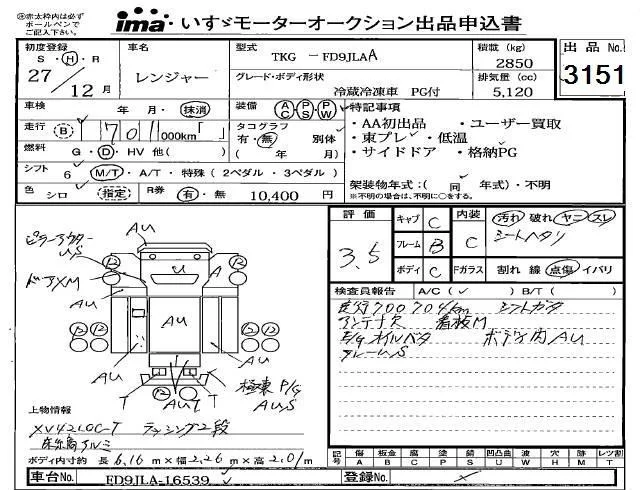 ※赤太枠内は必ず
ボールペンで
ご記入下さい。
ima いすゞモーターオークション出品申込書
初度登録
S・H・R
27 / 12月
車名
レンジャー
型式
TKG - FD9JLAA
グレード・ボディ形状
冷蔵冷凍車 PG付
積載 (kg)
2850
排気量 (cc)
5,120
出品No.
3151
車検 年・月・抹消
装備 AC PS PW
特記事項
・AA初出品 ・ユーザー買取
・東プレ ・低温
・サイドドア ・格納PG
走行 (B) 7011 000km「 」
タコグラフ
有・無 別体
( 年 月)
燃料 G・D・HV 他( )
シフト 6 M/T・A/T・特殊(2ペダル・3ペダル)
架装物年式:( 同 年式)・不明
※不明の場合は、不明に○をする。
色 シロ (指定) R券 有・無 10,400円
評価
3.5
キャブ C
フレーム B
ボディ C
内装 C
汚れ 破れ ヤニ スレ
シートヘタリ
Fガラス 割れ 線 点傷 イバリ
検査員報告 A/C( ✓ ) B/T( )
走行700704km シフトガタ
アンテナ欠 看板M
E/Gオイルバタ ボディ内AU
フレームS
ピラーアウター
US
ドアXM
AU
12
12
U
A
AU
12
12
AU
AU
T
12
12
T
AUT
極東P/G
AUS
上物情報
XV42LOC-T ラッシング2段
床糸高アルミ
ボディ内寸約 長 6.16 m×幅 2.26 m×高 2.01 m
記号 傷 板金 腐 塗 錆 凹凸曲 波 穴 跡 レンズ割
A B C P S U W H M T
車台No. FD9JLA-16539
登録No.